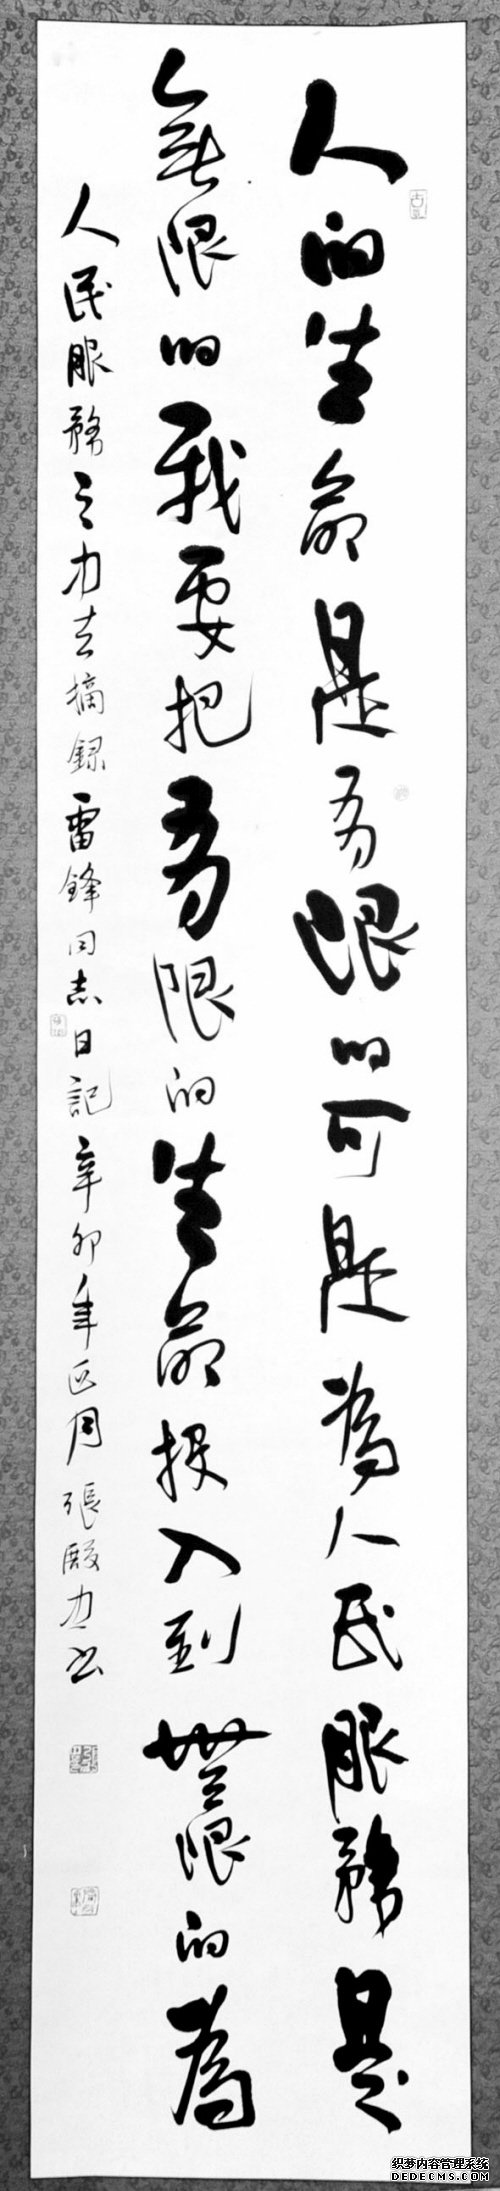 人的生命是有限的可是為人民服務是
無限的我要把有限的生命投入到無限的為
人民服務之中去摘録雷鋒同志日記辛卯年正月張殿书
织梦内容管理系统
DEDECMS.COM